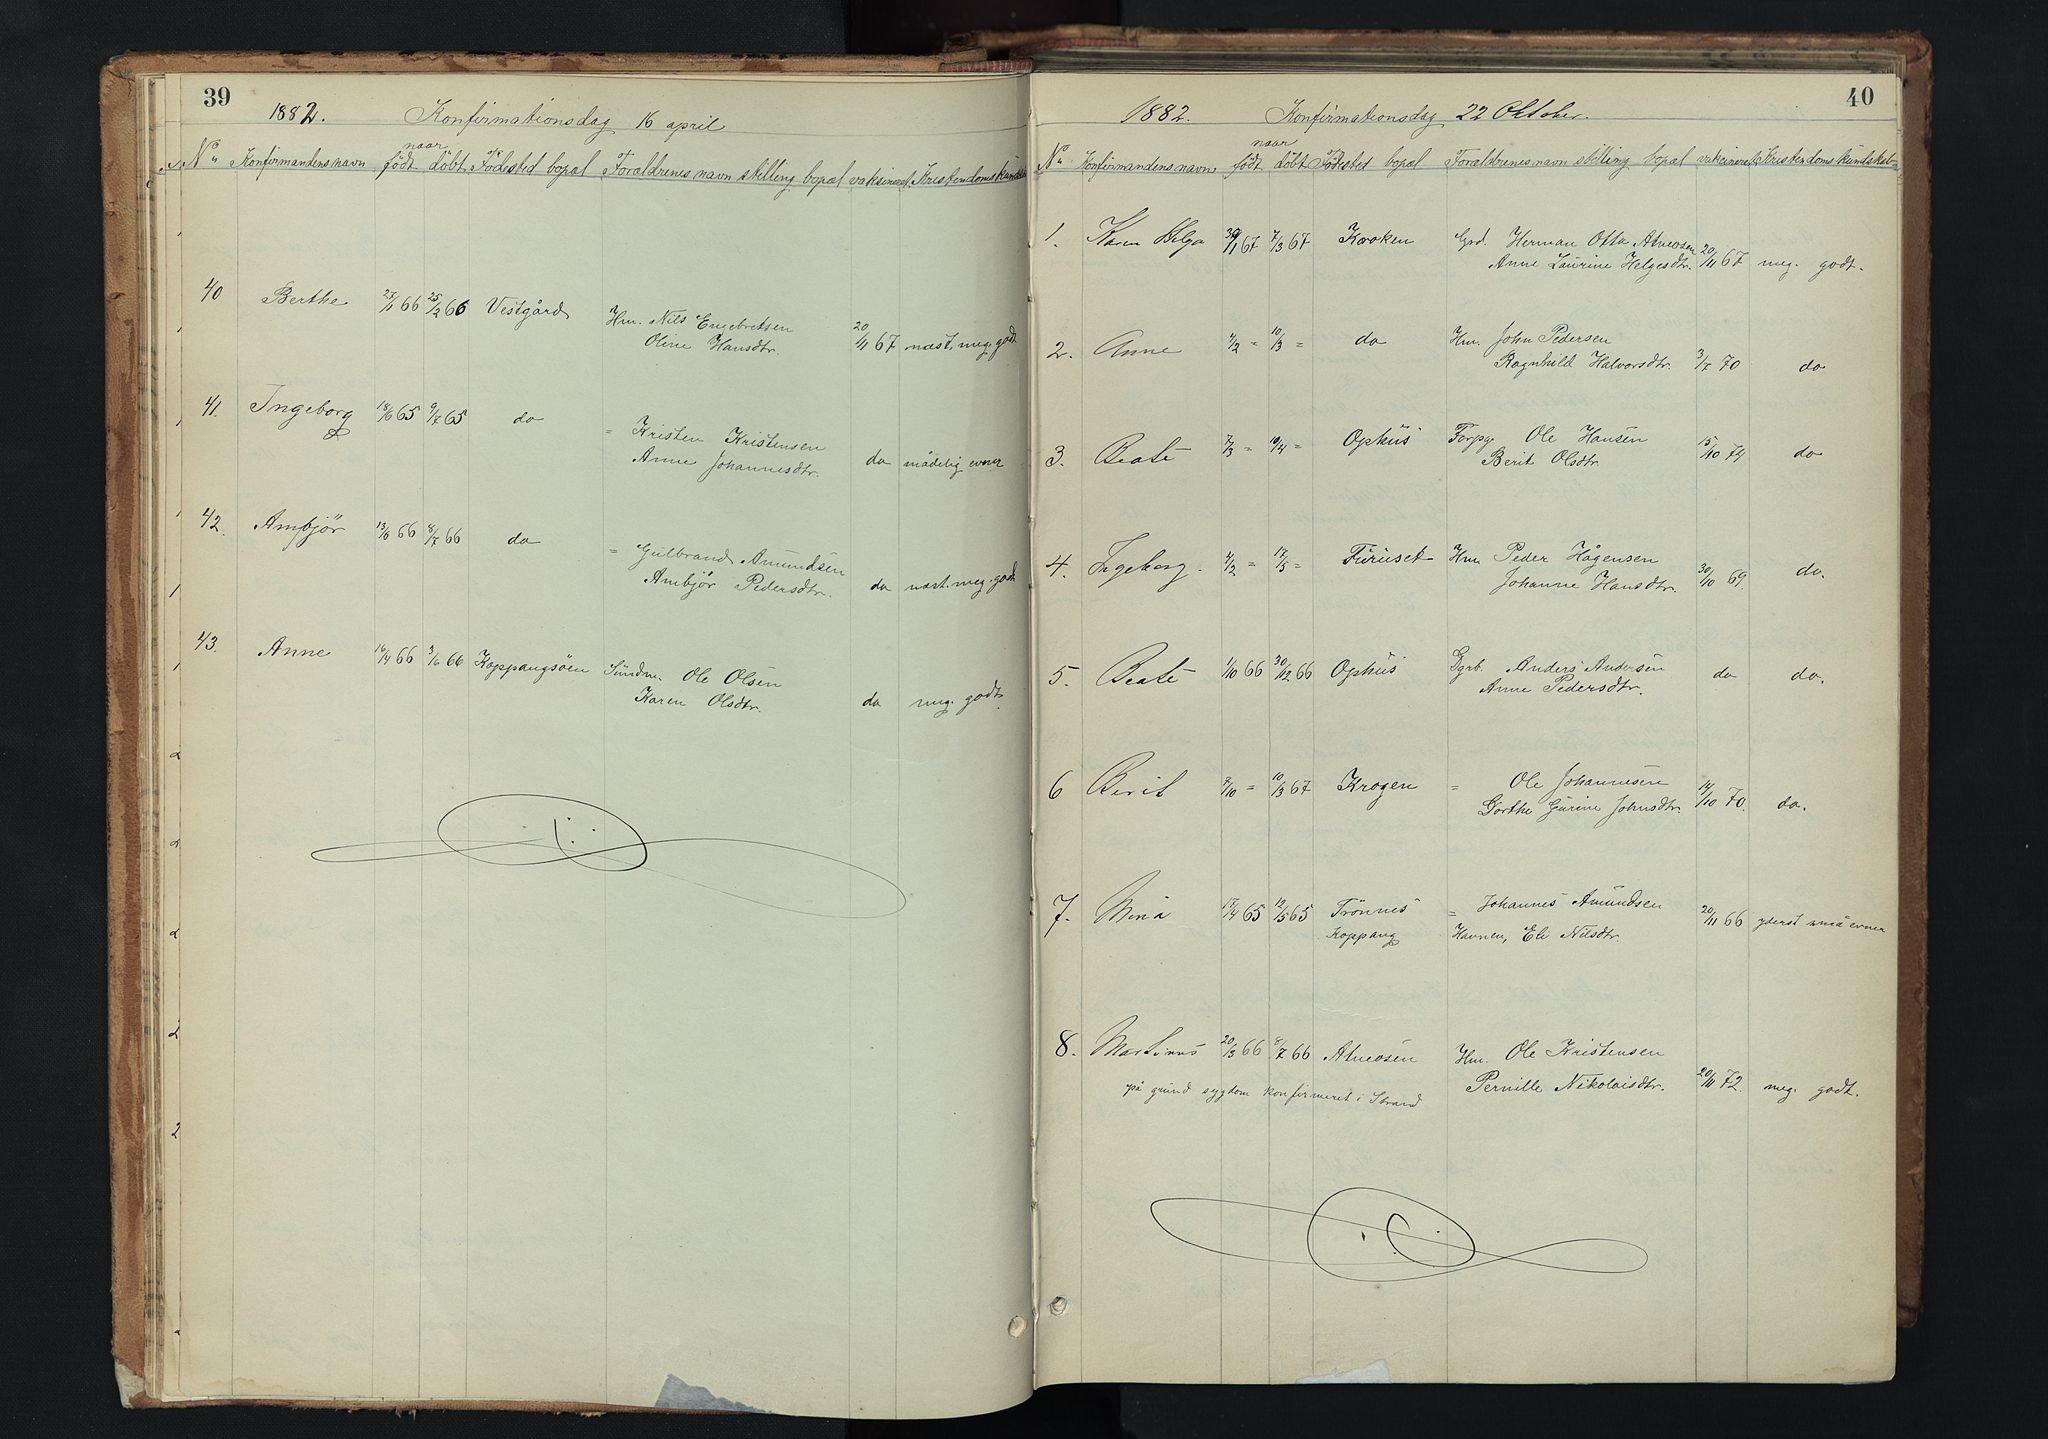 39
1882. Konfirmationsdag 16 april
No Konfirmandens navn naar født döbt Födested og bopæl Forældrenes navn stilling og bopæl vaksineret Kristendomskundskab
40 Berthe 27/1 66 25/2 66 Vestgård Hm. Nils Engebretsen
Oline Hansdtr. 20/11 67 næst. meg. godt
41. Ingeborg 18/6 65 9/7 65 do = Kristen Kristensen
Anne Johannesdtr. do mådelig evner
42. Ambjør 13/6 66 8/7 66 do = Gulbrand Amundsen
Ambjør Pedersdtr. do næst. meg. godt
43. Anne 16/4 66 3/6 66 Koppangsöen Ole Olsen
Karen Olsdtr. do meg. godt.
40
1882. Konfirmationsdag 22 Oktober.
No Konfirmandens navn naar født döbt Födested og bopæl Forældrenes navn stilling bopæl vaksineret Kristendomskundskab
1. Karen Helga 30/1 67 7/3 67 Kroken Grd. Herman Otto Atneosen
Anne Laurine Helgesdtr. 20/11 67 meg. godt.
2. Anne 4/2 = 10/3 = do Hm. John Pedersen
Ragnhild Halvorsdtr. 3/7 70 do
3. Beate 7/3 = 10/4 = Ophus Forpg. Ole Hansen
Berit Olsdtr. 15/10 74 do
4. Ingeborg. 4/2 = 17/5 = Furuset Hm. Peder Hågensen
Johanne Hansdtr. 30/10 69. do.
5. Beate 1/10 66 30/12 66 Ophus Gjrb. Anders Andersen
Anne Pedersdtr. do do.
6 Berit 7/10 = 10/3 67 Krogen = Ole Johannesen
Gorthe Gurine Johnsdtr. 14/10 70. do.
7. Mina 17/4 65 12/5 65 Trönnes = Johannes Amundsen
Koppang Havnen, Eli Nilsdtr. 20/11 66 yderst små evner
8. Martinus 20/3 66 8/7 66 Atneosen Hm. Ole Kristensen
på grund sygdom konfirmeret i Strand Pernille Nikolaisdtr. 20/11 72. meg. godt.